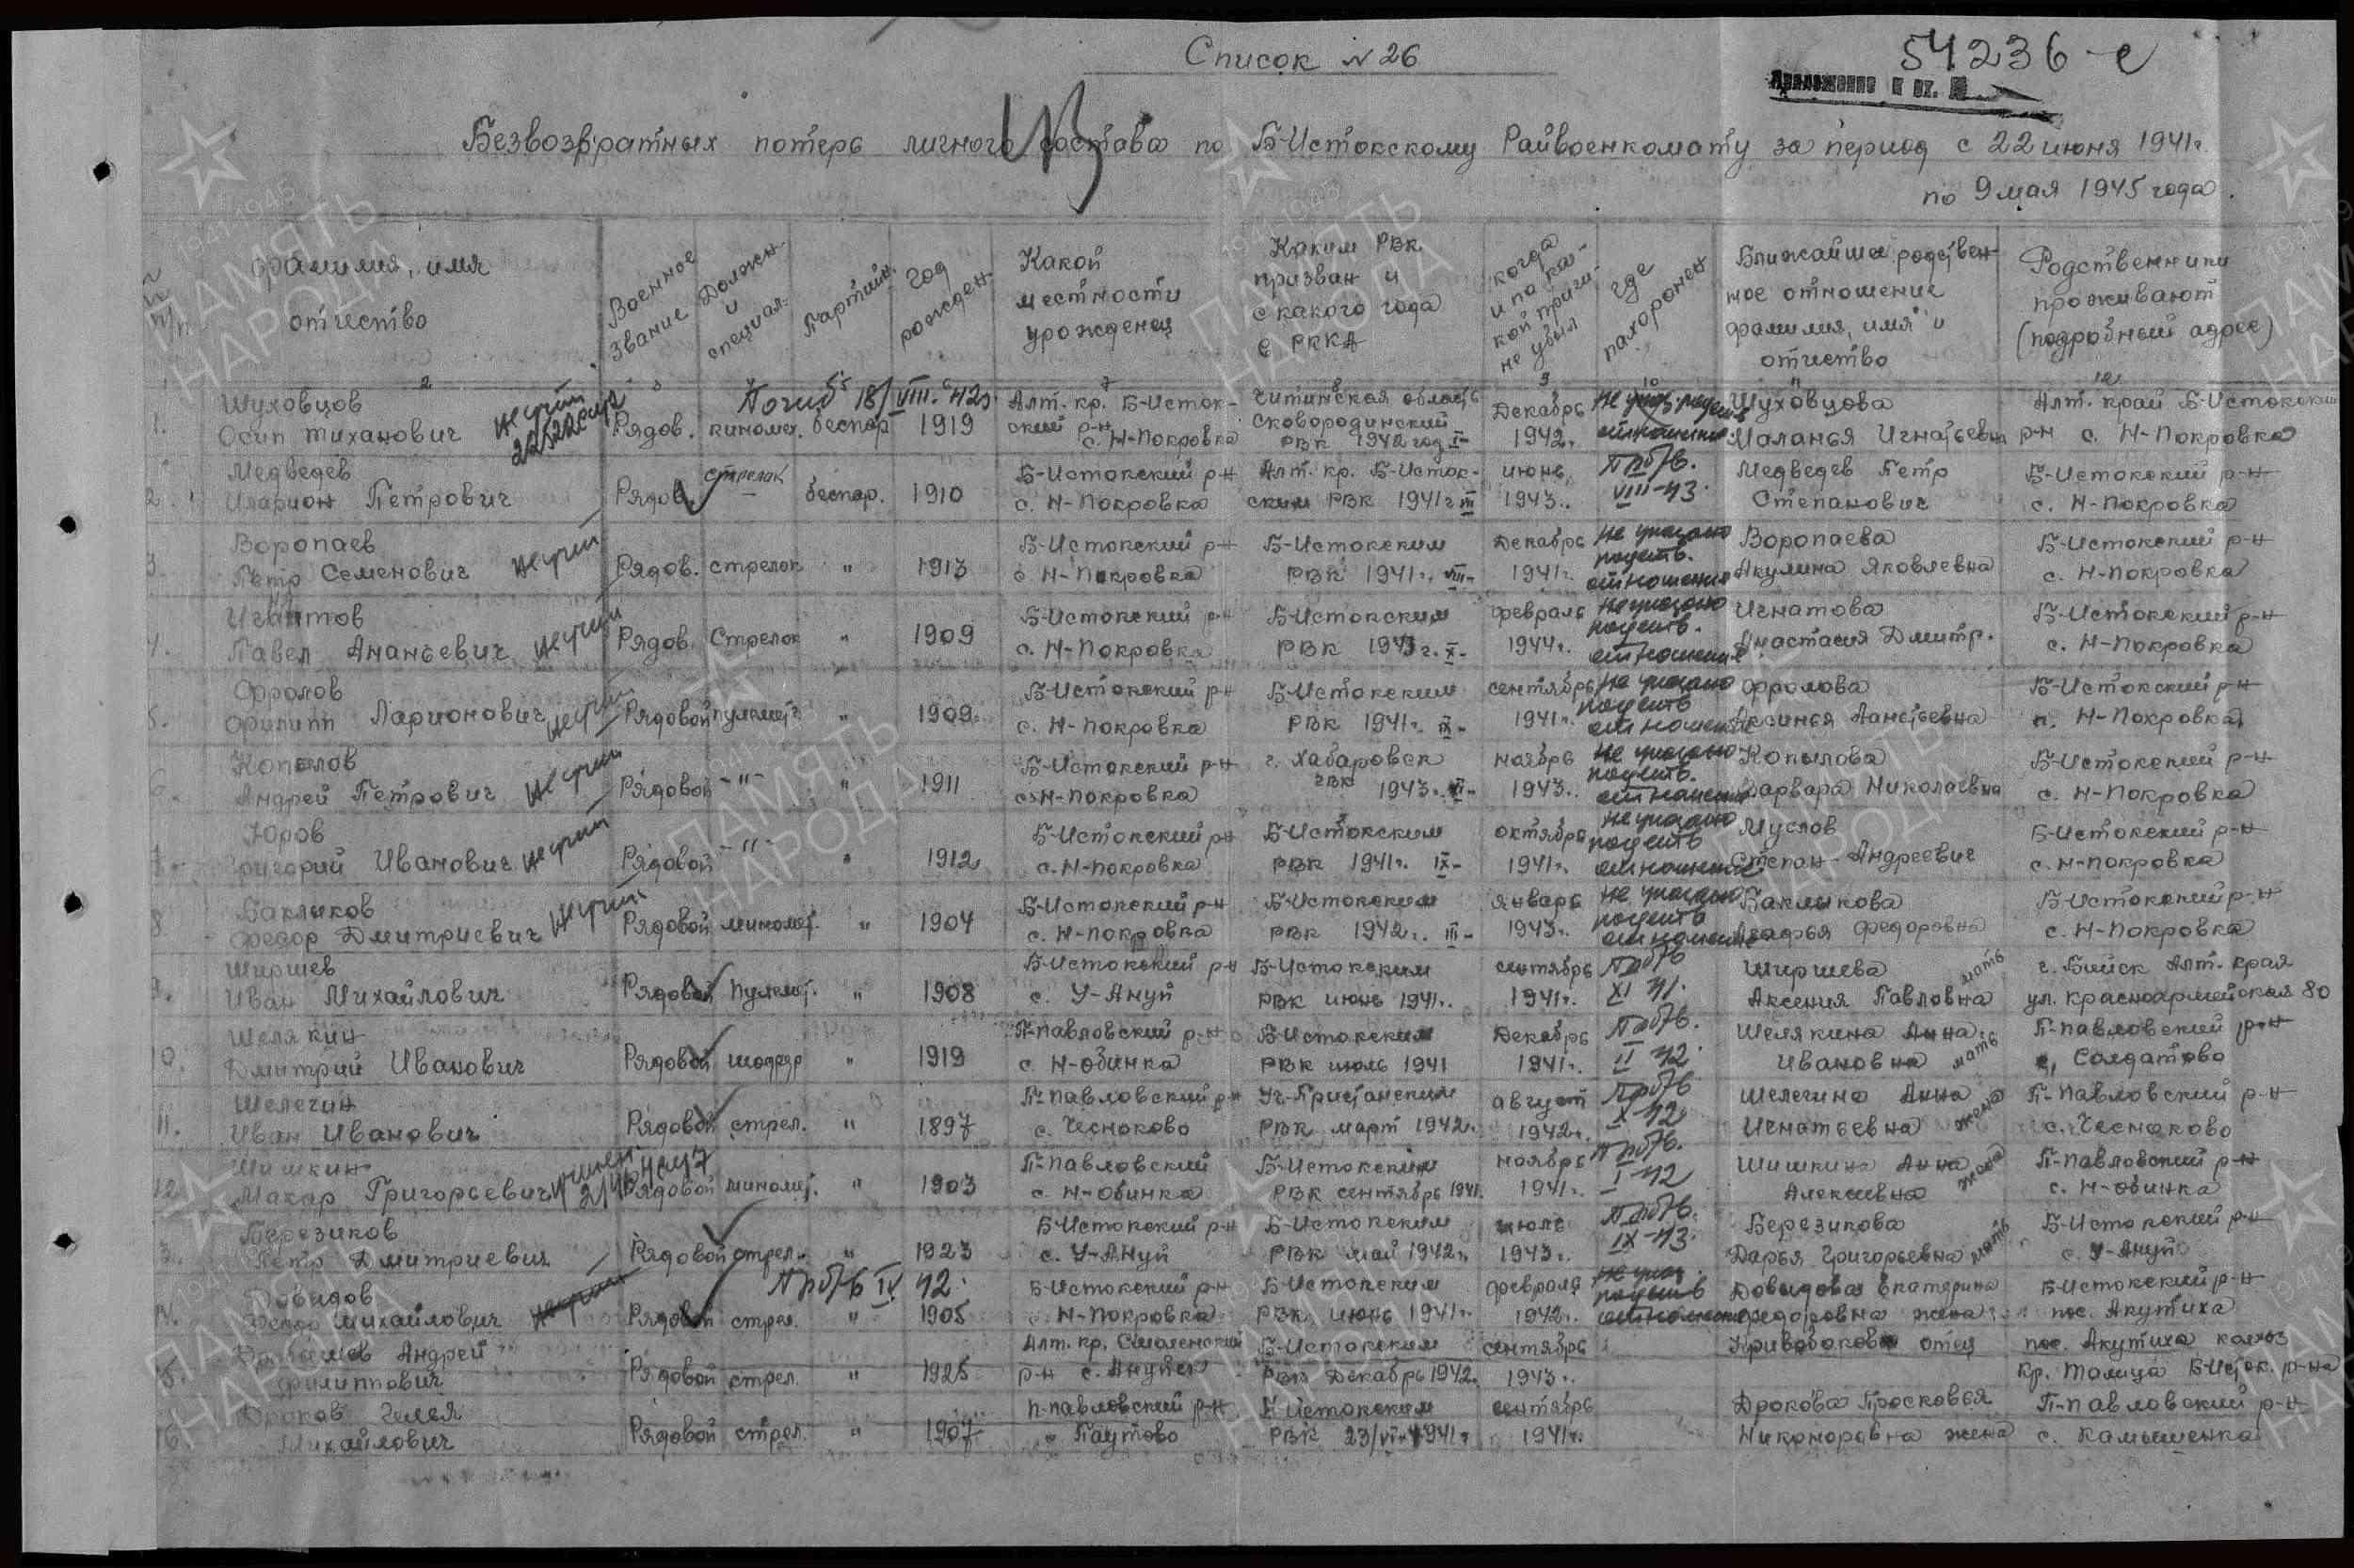 Список №26
54236-с
Приложение к вх. №
Безвозвратных потерь личного состава по Б-Истокскому Райвоенкомату за период с 22 июня 1941г.
по 9 мая 1945 года.
№ п/п
Фамилия, имя отчество
Военное звание
Должн. и специал.
Партийн.
Год рожден.
Какой местности уроженец
Каким РВК призван и с какого года в РККА
когда и по какой причине убыл
где похоронен
Ближайшее родственное отношение фамилия, имя и отчество
Родственники проживают (подробный адрес)
2 3 7 9 10 11 12
Погиб 18/VIII-42г.
1. Шуховцов Рядов. беспар. 1919 Алт. кр. Б-Истокский р-н с. Н-Покровка Читинская область Сковородинский РВК 1942 год Декабрь 1942г. Шуховцова Маланья Игнатьевна Алт. край Б-Истокский р-н с. Н-Покровка
Осип
2. Медведев Иларион Петрович Рядов. стрелок беспар. 1910 Б-Истокский р-н с. Н-Покровка Алт. кр. Б-Истокским РВК 1941г III июнь 1943г. VIII-43. Медведев Петр Степанович Б-Истокский р-н с. Н-Покровка
3. Воропаев Петр Семенович Рядов. стрелок " 1913 Б-Истокский р-н с Н-Покровка Б-Истокским РВК 1941г. VIII- Декабрь 1941г. не указано родств. отношение Воропаева Акулина Яковлевна Б-Истокский р-н с. Н-Покровка
4. Игнатов Павел Ананьевич Рядов. Стрелок " 1909 Б-Истокский р-н с. Н-Покровка Б-Истокским РВК 1943г. X- февраль 1944г. не указано родств. отношение Игнатова Анастасия Дмитр. Б-Истокский р-н с. Н-Покровка
5. Фролов Филипп Ларионович Рядовой пулемет. " 1909. Б-Истокский р-н с. Н-Покровка Б-Истокским РВК 1941г. IX- сентябрь 1941г. не указано родств отношение Фролова Аксинья Б-Истокский р-н с. Н-Покровка
6. Копылов Андрей Петрович Рядовой -"- " 1911 Б-Истокский р-н с Н-Покровка г. Хабаровск ГВК 1943г. ноябрь 1943г. не указано родств. отношение Копылова Варвара Николаевна Б-Истокский р-н с. Н-Покровка
7. Юров Григорий Иванович Рядовой -"- " 1912 Б-Истокский р-н с. Н-Покровка Б-Истокским РВК 1941г. IX- октябрь 1941г. не указано родств отношение Муслов Степан Андреевич Б-Истокский р-н с. Н-Покровка
8. Баклыков Федор Дмитриевич Рядовой миномет. " 1904 Б-Истокский р-н с. Н-Покровка Б-Истокским РВК 1942г. III- январь 1943г. не указано родств отношение Баклыкова Агафья Федоровна Б-Истокский р-н с. Н-Покровка
9. Ширшев Иван Михайлович Рядовой пулемет. " 1908 Б-Истокский р-н с. У-Ануй Б-Истокским РВК июнь 1941г. сентябрь 1941г. XI 41. Ширшева Аксения Павловна мать г. Бийск Алт. края ул. Красноармейская 80
10. Шелякин Дмитрий Иванович Рядовой шофер " 1919 П-Павловский р-н с. Н-Обинка Б-Истокским РВК июль 1941 Декабрь 1941г. II 42. Шелякина Анна Ивановна мать П-Павловский р-н с. Солдатово
11. Шелегин Иван Иванович Рядовой стрел. " 1897 П-Павловский р-н с. Чесноково Уч-Пристанским РВК март 1942г. август 1942г. X-42 Шелегина Анна Игнатьевна жена П-Павловский р-н с. Чесноково
12. Шишкин Макар Григорьевич Рядовой миномет. " 1903 П-Павловский с. Н-Обинка Б-Истокским РВК сентябрь 1941г. ноябрь 1941г. I-42 Шишкина Анна Алексеевна жена П-Павловский р-н с. Н-Обинка
13. Березиков Петр Дмитриевич Рядовой стрел. " 1923 Б-Истокский р-н с. У-Ануй Б-Истокским РВК май 1942г. июль 1943г. IX-43. Березикова Дарья Григорьевна мать Б-Истокский р-н с. У-Ануй
14. Довидов Михайлович Рядовой стрел. " 1905 Б-Истокский р-н с. Н-Покровка Б-Истокским РВК июнь 1941г. февраля 1942г. Довидова Екатерина Федоровна жена Б-Истокский р-н пос. Акутиха
IV 42.
15. Андрей Филиппович Рядовой стрел. " 1925 Алт. кр. Смоленский р-н с. Б-Истокским РВК Декабрь 1942г. сентябрь 1943г. отец пос. Акутиха колхоз Б-Исток. р-на
16. Дроков Илья Михайлович Рядовой стрел. " 1907 П-Павловский р-н с Паутово Б-Истокским РВК 23/VI-1941г. сентябрь 1941г. Дрокова Просковья Никоноровна жена П-Павловский р-н с. Камышенка